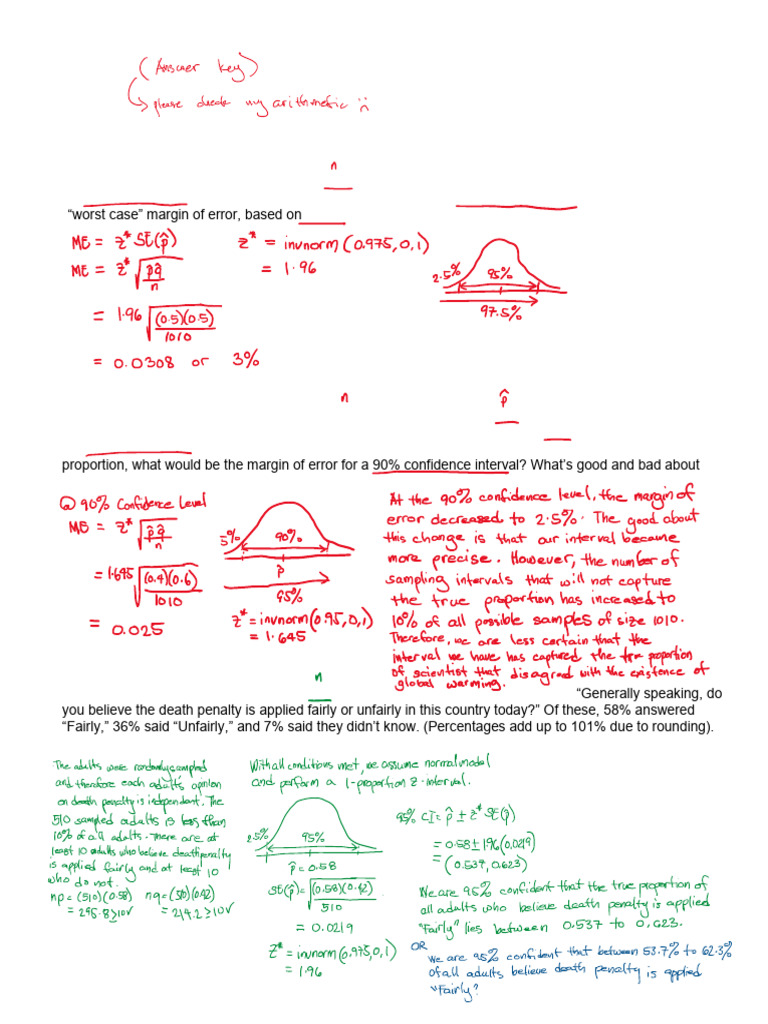 (Answer key)
please check my arithmetic :(
n
"worst case" margin of error, based on
ME = z* SE(p̂)
z* = invnorm(0.975,0,1)
ME = z* √(p̂q̂/n)
= 1.96
2.5% 95%
97.5%
= 1.96 √((0.5)(0.5)/1010)
= 0.0308 or 3%
n p̂
proportion, what would be the margin of error for a 90% confidence interval? What's good and bad about
@ 90% Confidence Level
ME = z* √(p̂q̂/n)
= 1.645 √((0.4)(0.6)/1010)
= 0.025
5% 90%
p̂
95%
z* = invnorm(0.95,0,1)
= 1.645
At the 90% confidence level, the margin of
error decreased to 2.5%. The good about
this change is that our interval became
more precise. However, the number of
sampling intervals that will not capture
the true proportion has increased to
10% of all possible samples of size 1010.
Therefore, we are less certain that the
interval we have has captured the true proportion
of scientist that disagreed with the existence of
global warming.
n
"Generally speaking, do
you believe the death penalty is applied fairly or unfairly in this country today?" Of these, 58% answered
"Fairly," 36% said "Unfairly," and 7% said they didn't know. (Percentages add up to 101% due to rounding).
The adults were randomly sampled
and therefore each adult's opinion
on death penalty is independent. The
510 sampled adults is less than
10% of all adults. There are at
least 10 adults who believe death penalty
is applied fairly and at least 10
who do not.
np = (510)(0.58) nq = (510)(0.42)
= 295.8 ≥ 10 ✓ = 214.2 ≥ 10 ✓
With all conditions met, we assume normal model
and perform a 1-proportion z-interval.
2.5% 95%
p̂ = 0.58
SE(p̂) = √((0.58)(0.42)/510)
= 0.0219
z* = invnorm(0.975,0,1)
= 1.96
95% CI = p̂ ± z* SE(p̂)
= 0.58 ± 1.96(0.0219)
= (0.537, 0.623)
We are 95% confident that the true proportion of
all adults who believe death penalty is applied
"Fairly" lies between 0.537 to 0.623.
OR
we are 95% confident that between 53.7% to 62.3%
of all adults believe death penalty is applied
"Fairly".